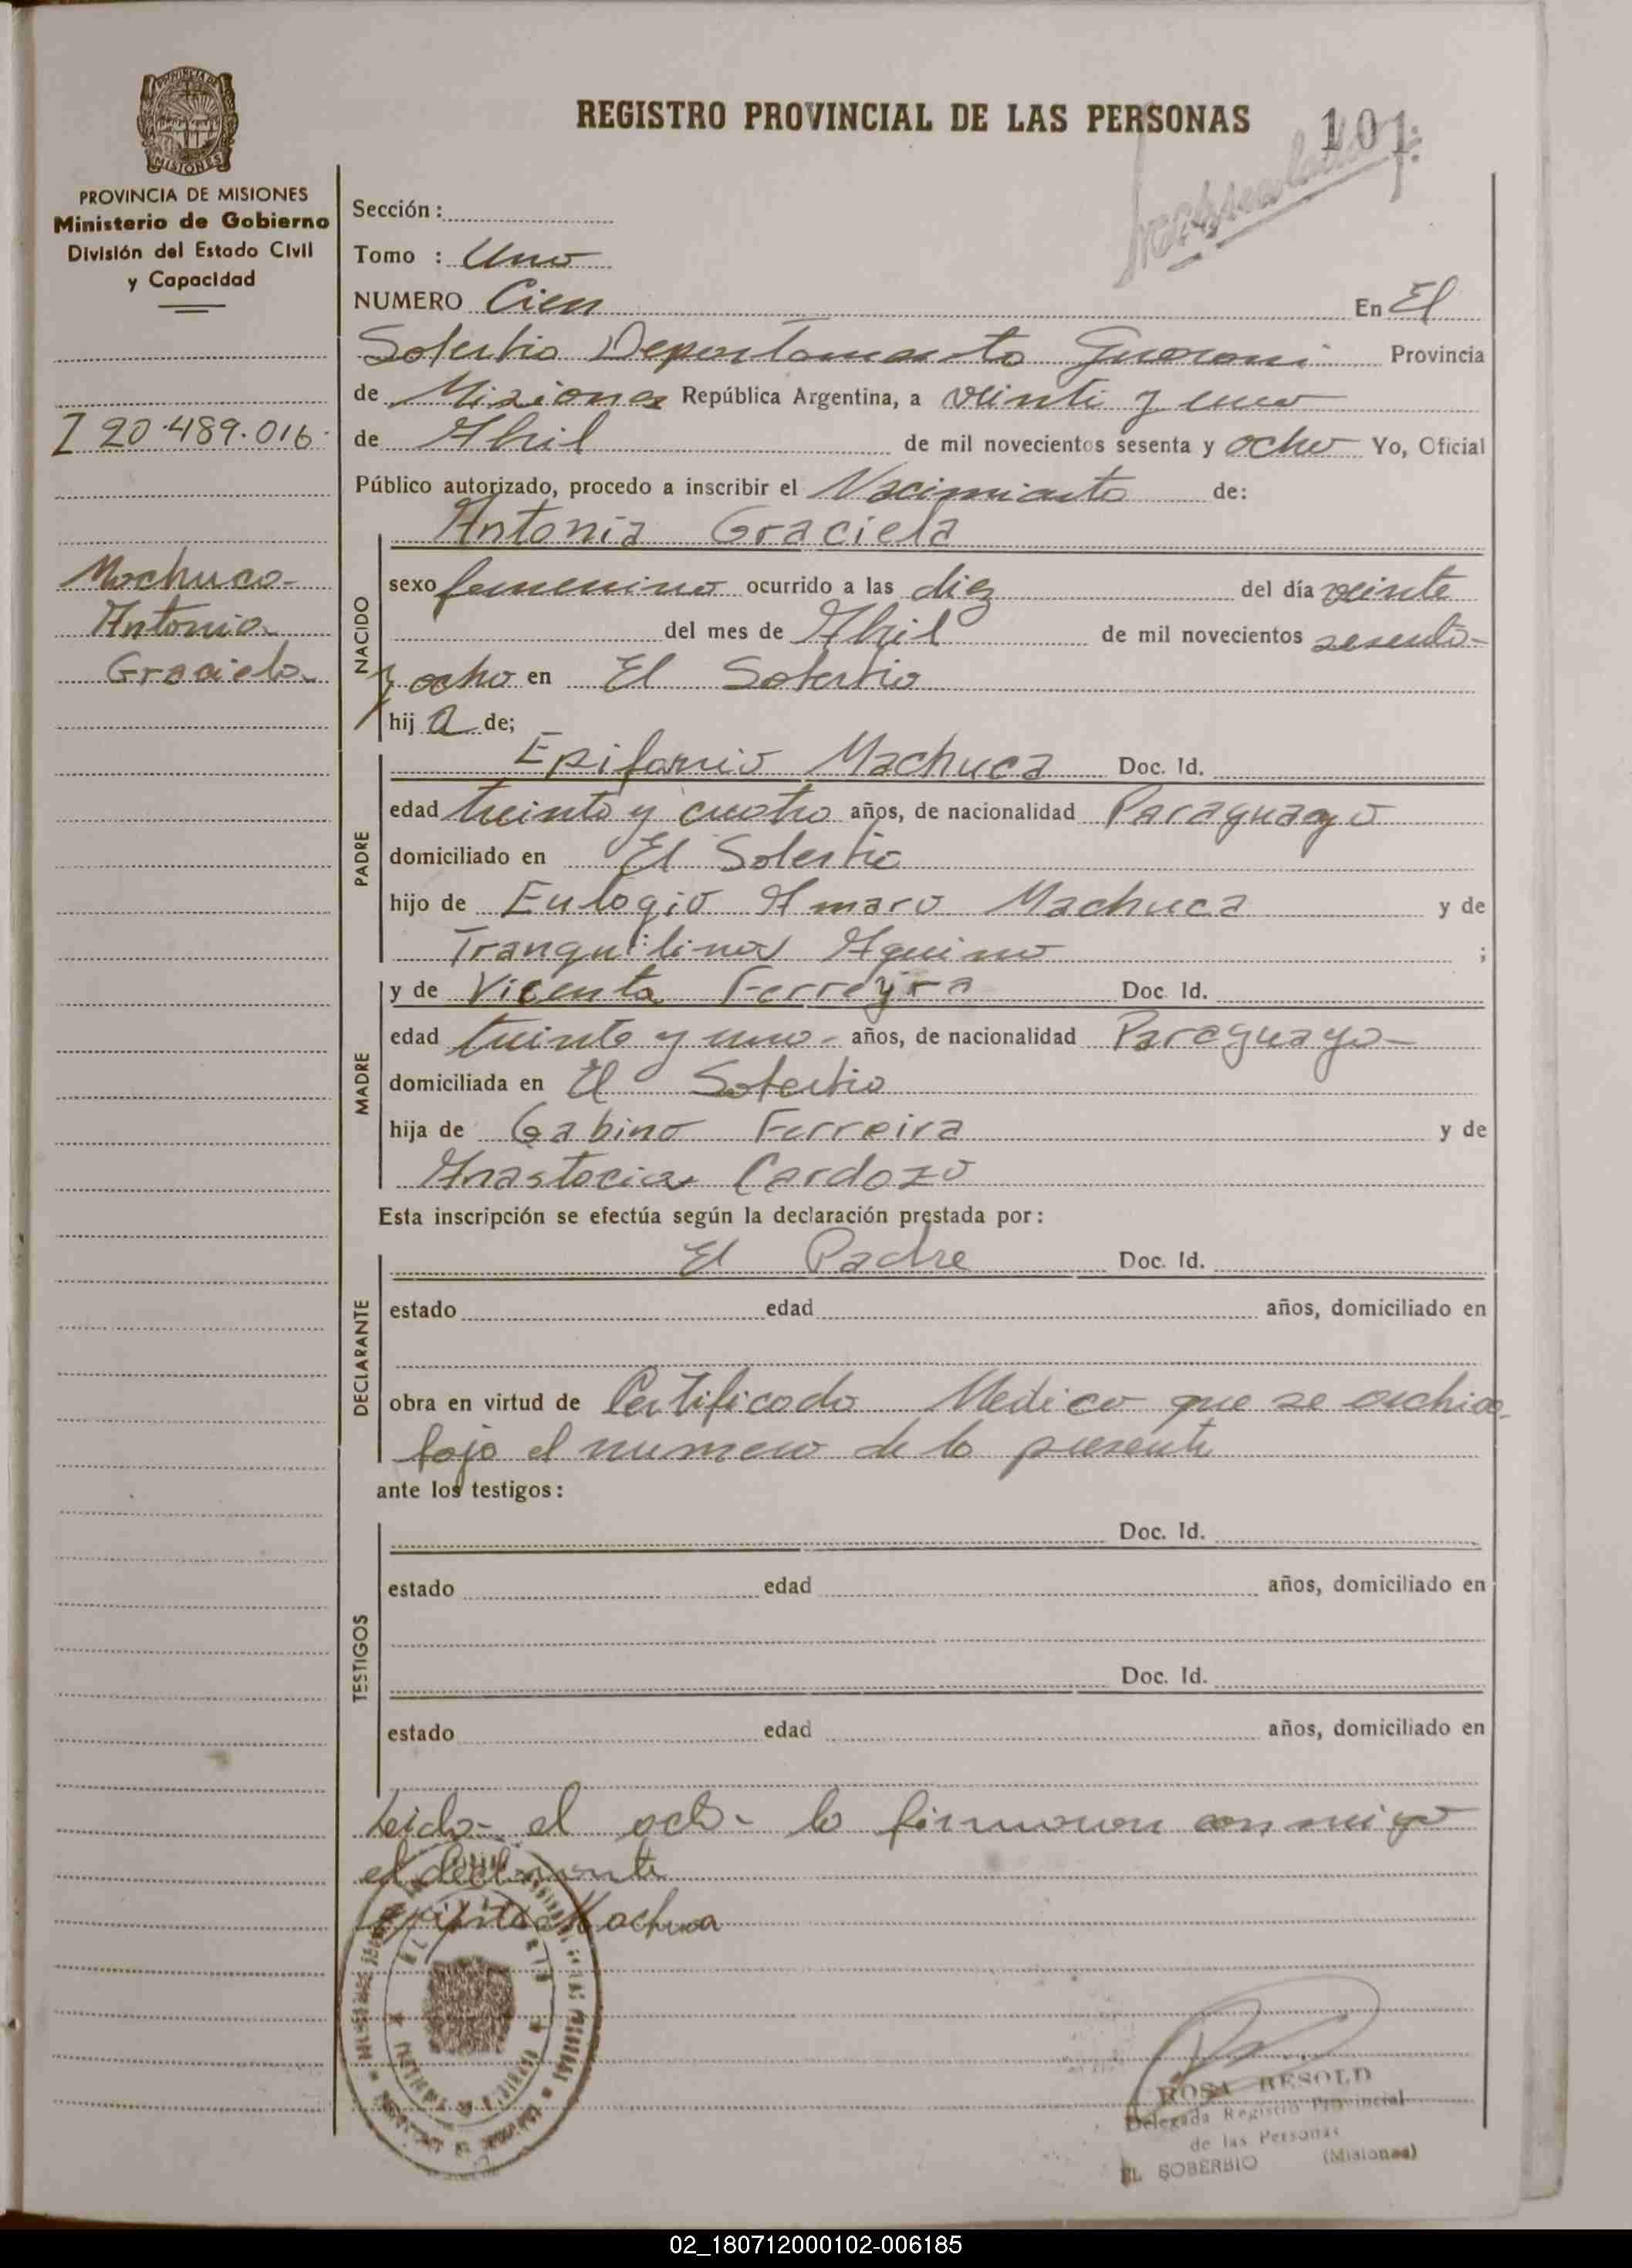 REGISTRO PROVINCIAL DE LAS PERSONAS
101
PROVINCIA DE MISIONES
Ministerio de Gobierno
División del Estado Civil
y Capacidad
20.489.016
Machuca
Antonia
Graciela
Sección:
Tomo : Uno
NUMERO Cien En El
Soberbio Departamento Guarani Provincia
de Misiones República Argentina, a veinti y uno
de Abril de mil novecientos sesenta y ocho Yo, Oficial
Público autorizado, procedo a inscribir el Nacimiento de:
Antonia Graciela
NACIDO
sexo femenino ocurrido a las diez del día veinte
del mes de Abril de mil novecientos sesenta
y ocho en El Soberbio
hij a de;
Epifanio Machuca Doc. Id.
PADRE
edad treinta y cuatro años, de nacionalidad Paraguayo
domiciliado en El Soberbio
hijo de Eulogio Amaro Machuca y de
Tranquilina Aquino ;
y de Vicenta Ferreyra Doc. Id.
MADRE
edad treinta y uno años, de nacionalidad Paraguaya
domiciliada en El Soberbio
hija de Gabino Ferreira y de
Anastacia Cardozo
Esta inscripción se efectúa según la declaración prestada por:
El Padre Doc. Id.
DECLARANTE
estado edad años, domiciliado en
obra en virtud de Certificado Medico que se archiva
bajo el numero de la presente
ante los testigos:
Doc. Id.
TESTIGOS
estado edad años, domiciliado en
Doc. Id.
estado edad años, domiciliado en
Leida el acta lo firmaron con migo
el declarante
Machuca
ROSA BESOLD
Delegada Registro Provincial
de las Personas
EL SOBERBIO (Misiones)
02_180712000102-006185